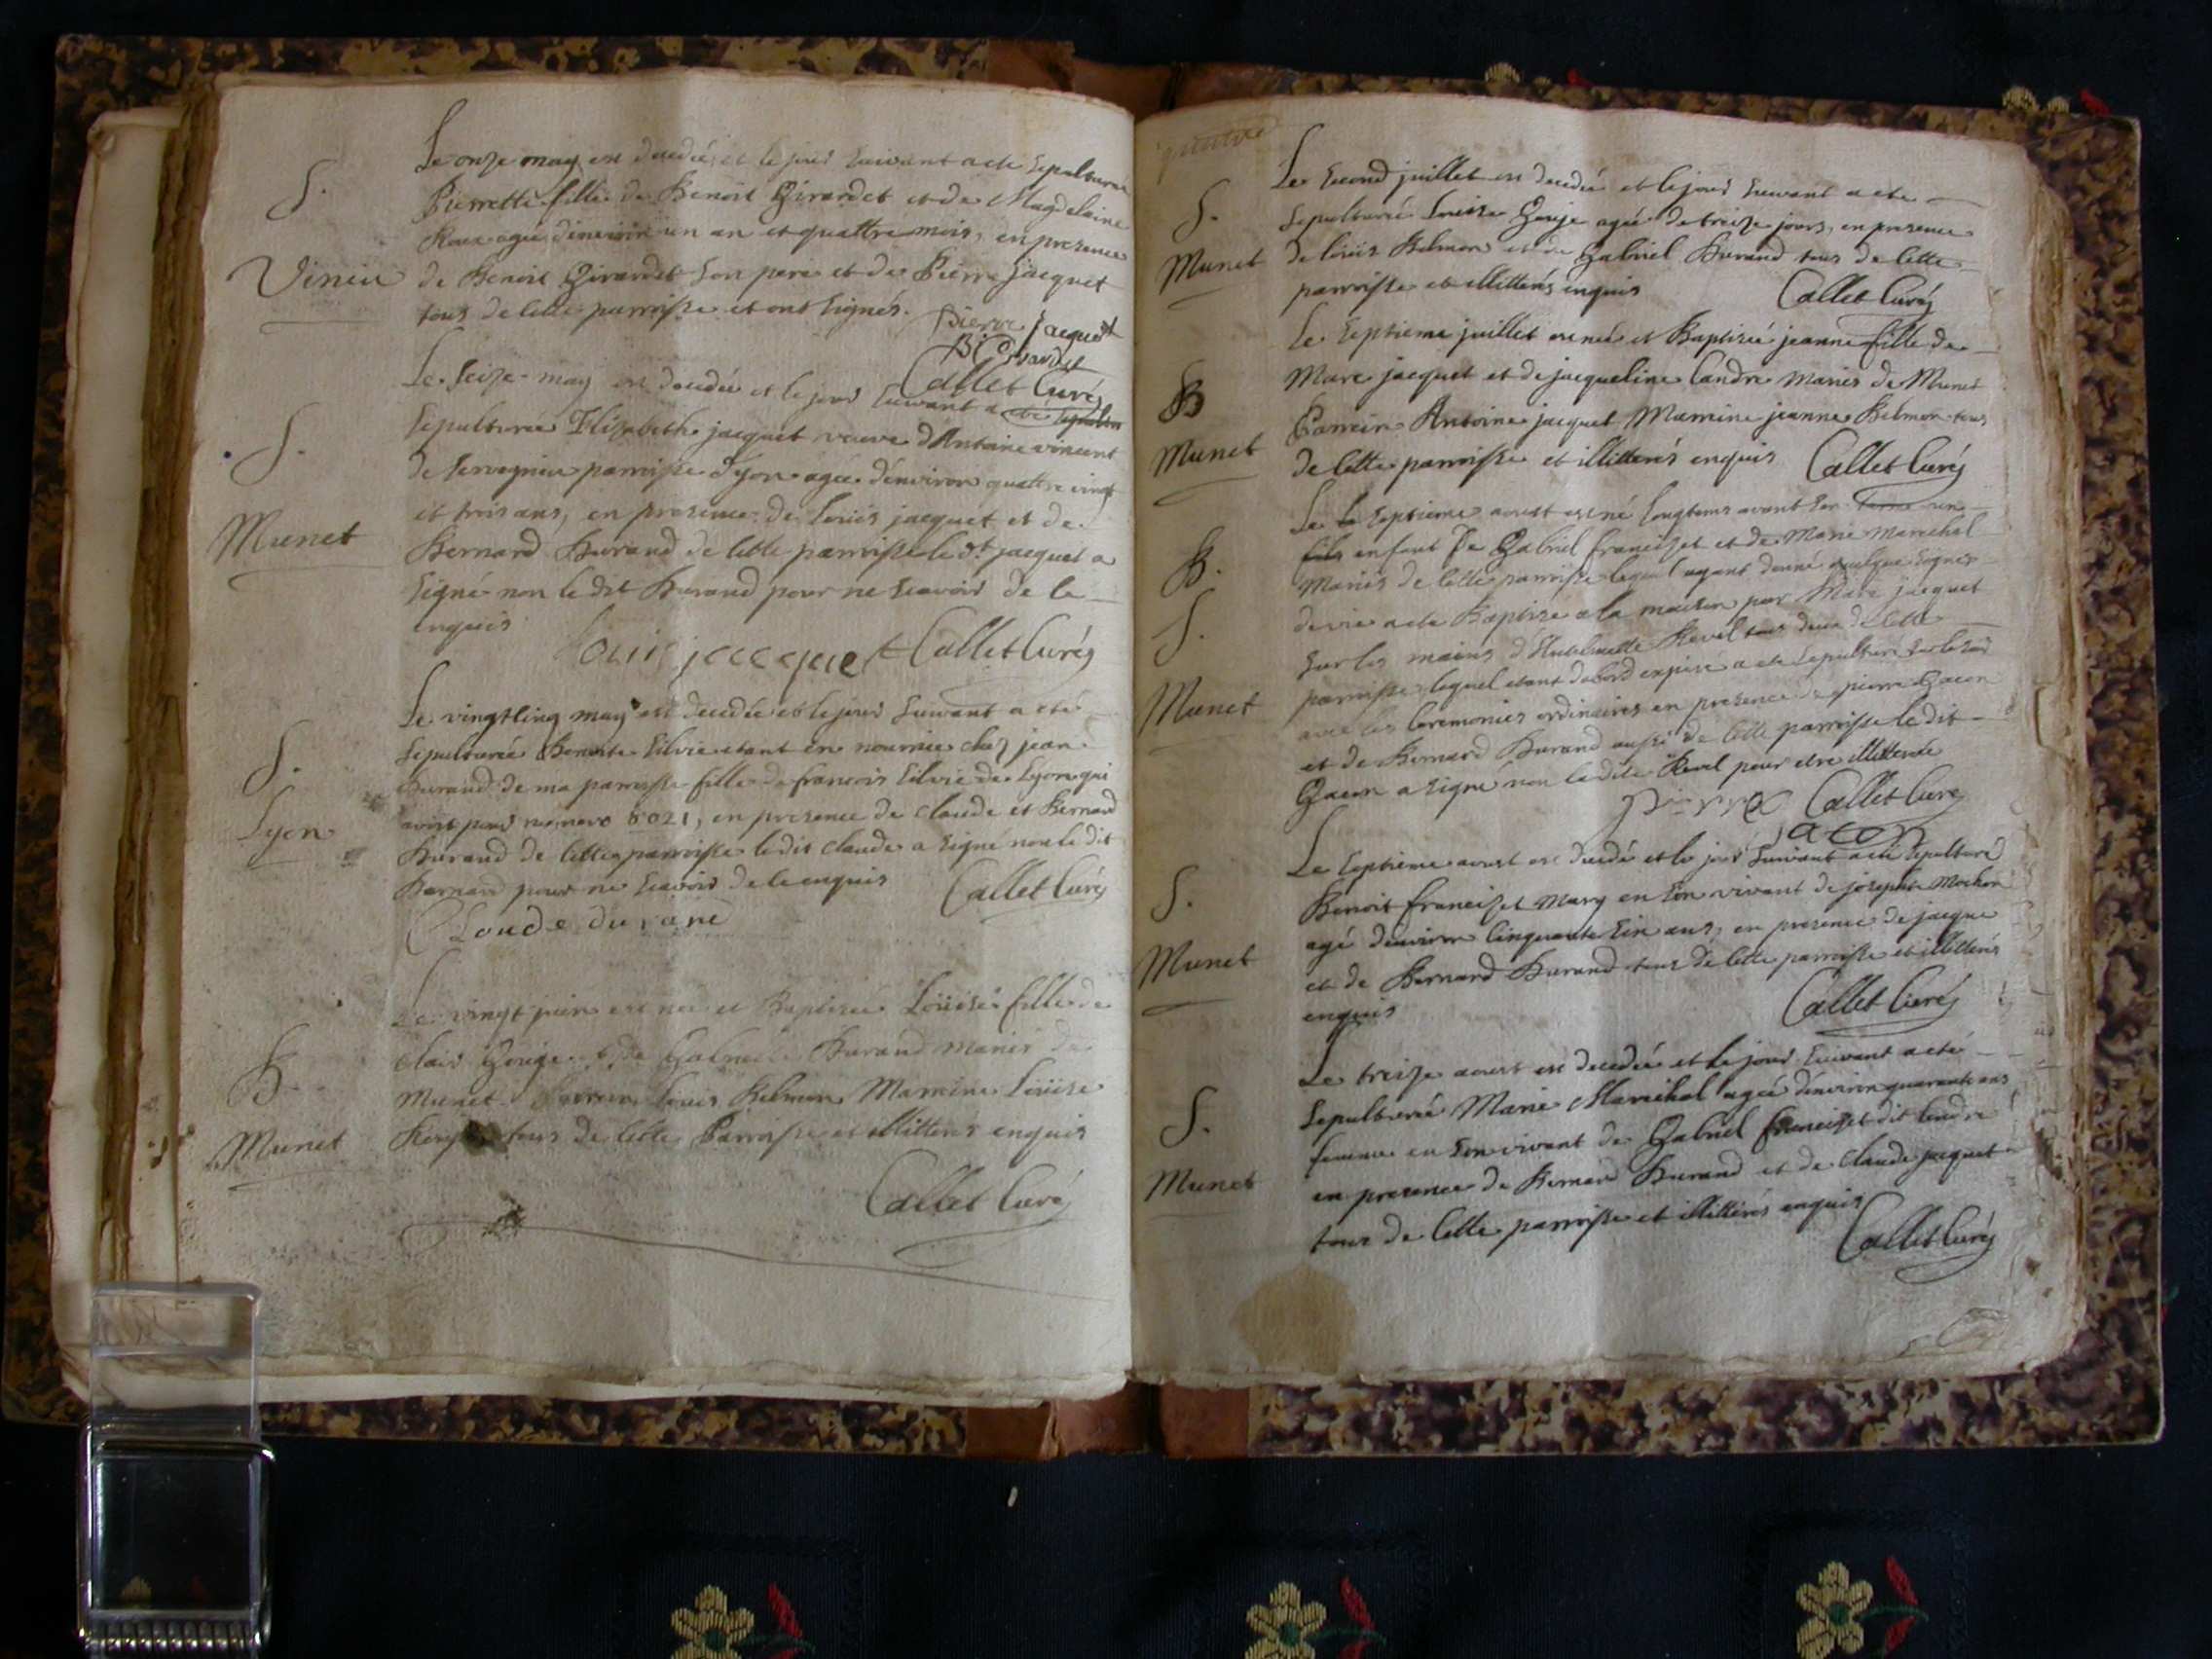 Le onze may est decedée et le jour suivant a ete sepulturée
S.
Pierrette fille de Benoit Girardet et de Magdelaine
Roux agée d'environ un an et quattre mois, en presence
Vinciu
de Benoit Girardet son pere et de Pierre jacquet
tous de cette parroisse et ont signés.
Pierre jacquet
B Girardet
Callet Curé
Le seize may est decedée et le jour suivant a eté sepultu
sepulturée Elisabeth jacquet veuve d'Antoine vincent
S.
de parroisse d'yon agée d'environ quattre vingt
et trois ans, en presence de Louis jacquet et de
Munet
Bernard Durand de cette parroisse le dt jacquet a
signé non le dit Durand pour ne scavoir de ce
enquis
Louis jacquet
Callet Curé
Le vingtcinq may est decedée et le jour suivant a eté
S.
sepulturée Benoite Silvie etant en nourrice chez jean
Durand de ma parroisse fille de francois Silvie de Lyon qui
Lyon
avoit pour numero 6021, en presence de claude et Bernard
Durand de cette parroisse le dit claude a signé non le dit
Bernard pour ne scavoir de ce enquis
Callet Curé
Cloude durand
Le vingt juin est née et Baptisée Loüise fille de
B.
clair Gouje et de Gabrielle Durand mariés de
Munet Parrein Louis Belmon Marreine Loüise
Munet
tous de cette Parroisse et illitterés enquis
Callet Curé
Le second juillet est decedée et le jour suivant a ete
S.
sepulturée Louise Gouje agée de treize jours, en presence
Munet
de loüis Belmon et de Gabriel Durand tous de cette
parroisse et illitterés enquis
Callet Curé
Le septieme juillet est née et Baptisée jeanne fille de
B
Marc jacquet et de jacqueline Candre mariés de Munet
Parrein Antoine jacquet Marreine jeanne Belmon tous
Munet
de cette parroisse et illitterés enquis
Callet Curé
Le le septieme aoust est né longtems avant son terme un
B.
fils enfant de Gabriel francizet et de Marie Marechal
Mariés de cette parroisse lequel ayant donné quelque signes
S.
de vie a ete Baptisé a la maison par Marc jacquet
sur les mains d' Revil tous deux de cette
Munet
parroisse lequel etant dabord expiré a ete sepulturé
avec les ceremonies ordinaires en presence de pierre Gacon
et de Bernard Durand aussi de cette parroisse le dit
Gacon a signé non la dite Revil pour etre illitterée
Callet Curé
Pierre
Gacon
Le septieme aoust est decedé et le jour suivant a eté sepulturé
S.
Benoit francizet Mary en son vivant de josephte Mochon
agé denviron cinquante six ans, en presence de jacque
Munet
et de Bernard Durand tous de cette parroisse et illitterés
enquis
Callet Curé
Le treize aoust est decedée et le jour suivant a eté
sepulturée Marie Marechal agée d'environ quarante ans
S.
femme en son vivant de Gabriel francizet dit Candre
Munet
en presence de Bernard Durand et de claude jacquet
tous de cette parroisse et illitterés enquis
Callet Curé